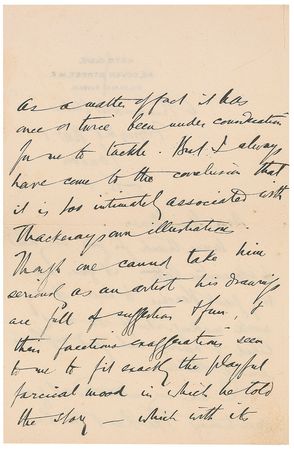 as a matter of fact it has
once or twice been under consideration
for me to tackle. But I always
have come to the conclusion that
it is too intimately associated with
Thackeray's own illustrations
Though one cannot take him
seriously as an artist his drawings
are full of suggestion & fun, &
their facetious exaggerations seem
to me to fit exactly the playful
farcical mood in which he told
the story — which with its